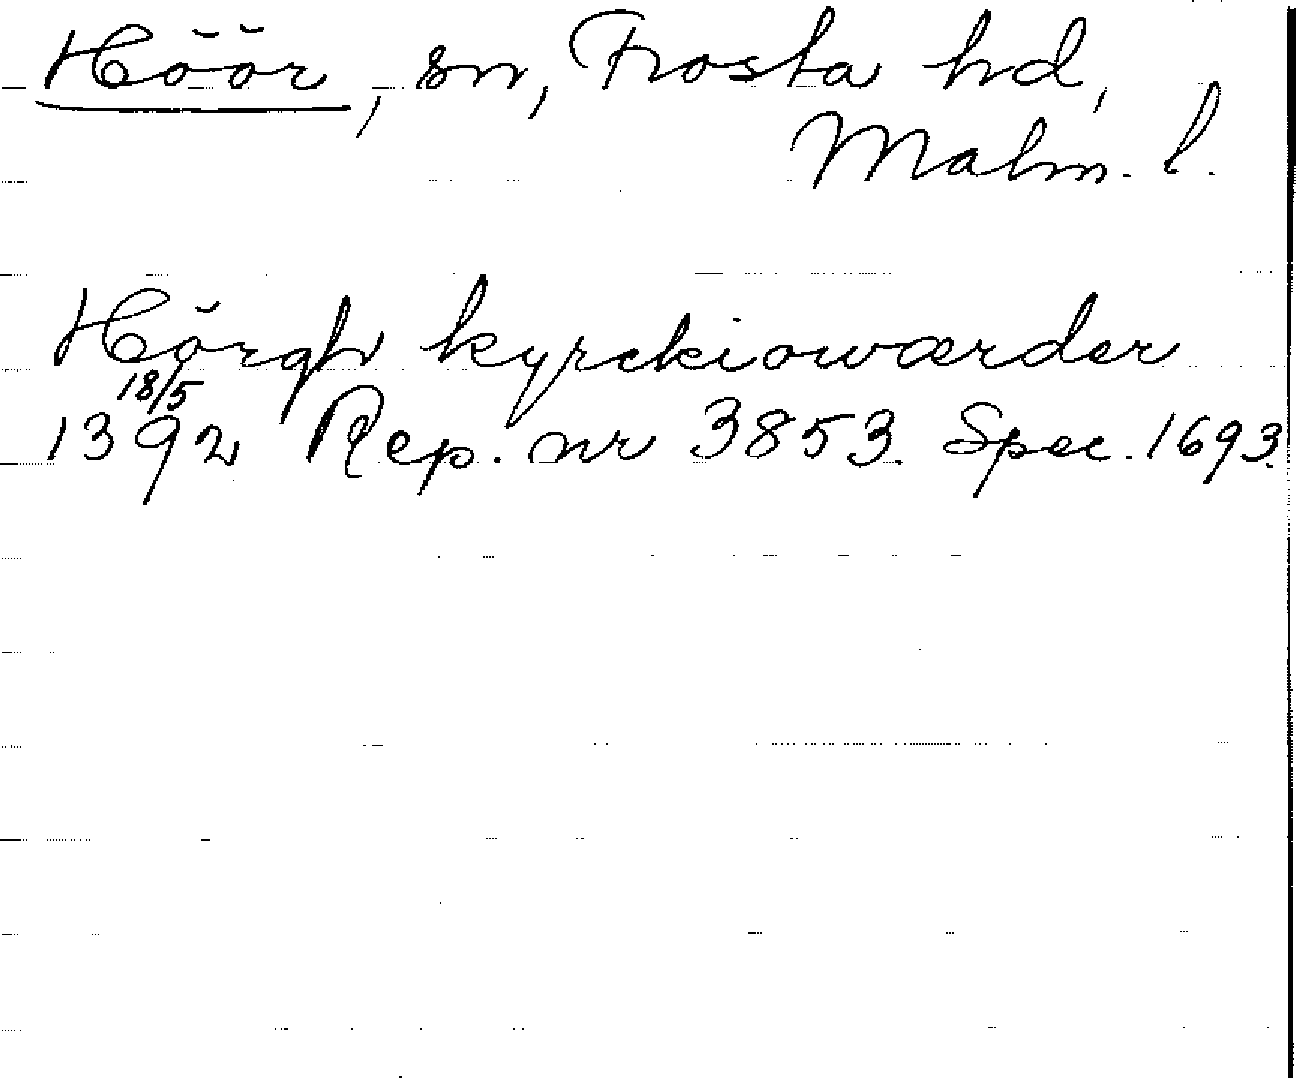 Höör, sn, Frosta hd,
Malm. l.
Hörgh kyrckiowærder
18/5
1392 Rep. nr 3853. Spec. 1693.